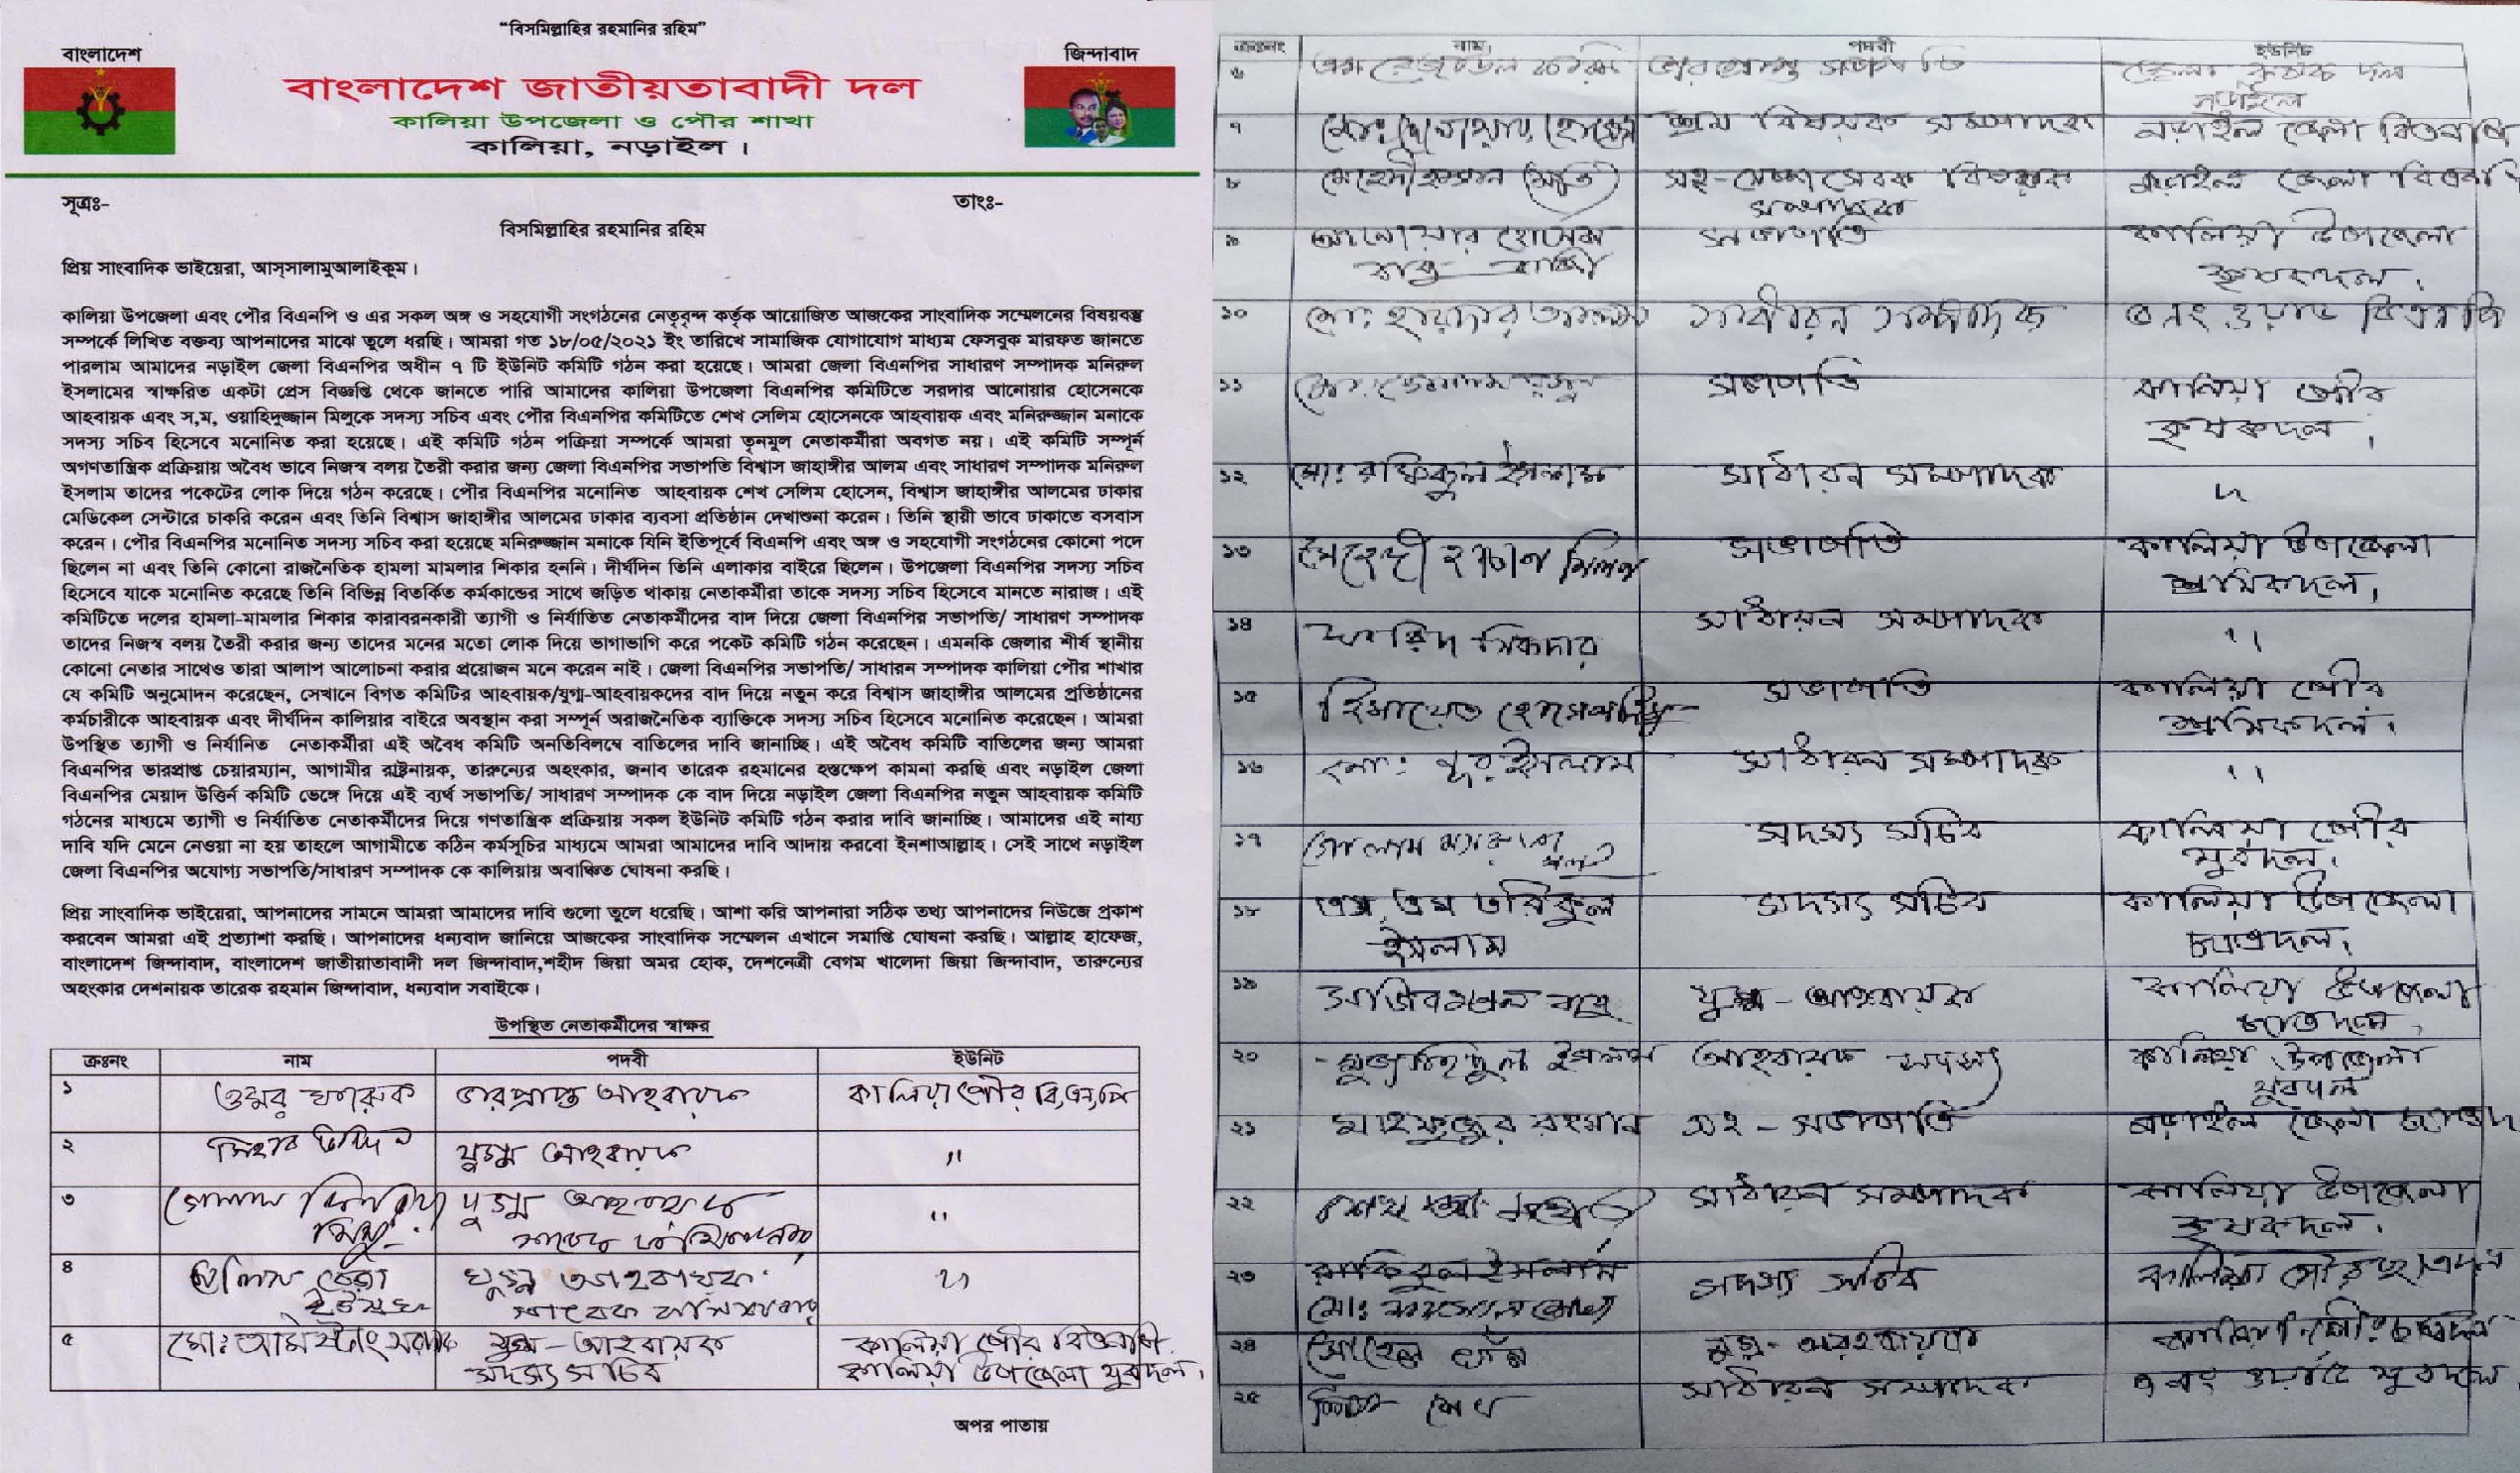 “বিসমিল্লাহির রহমানির রহিম”
বাংলাদেশ
জিন্দাবাদ
বাংলাদেশ জাতীয়তাবাদী দল
কালিয়া উপজেলা ও পৌর শাখা
কালিয়া, নড়াইল।
সূত্রঃ-
তাংঃ-
বিসমিল্লাহির রহমানির রহিম
প্রিয় সাংবাদিক ভাইয়েরা, আস্সালামুআলাইকুম।
কালিয়া উপজেলা এবং পৌর বিএনপি ও এর সকল অঙ্গ ও সহযোগী সংগঠনের নেতৃবৃন্দ কর্তৃক আয়োজিত আজকের সাংবাদিক সম্মেলনের বিষয়বস্তু
সম্পর্কে লিখিত বক্তব্য আপনাদের মাঝে তুলে ধরছি। আমরা গত ১৮/০৫/২০২১ ইং তারিখে সামাজিক যোগাযোগ মাধ্যম ফেসবুক মারফত জানতে
পারলাম আমাদের নড়াইল জেলা বিএনপির অধীন ৭ টি ইউনিট কমিটি গঠন করা হয়েছে। আমরা জেলা বিএনপির সাধারণ সম্পাদক মনিরুল
ইসলামের স্বাক্ষরিত একটা প্রেস বিজ্ঞপ্তি থেকে জানতে পারি আমাদের কালিয়া উপজেলা বিএনপির কমিটিতে সরদার আনোয়ার হোসেনকে
আহবায়ক এবং স,ম, ওয়াহিদুজ্জান মিলুকে সদস্য সচিব এবং পৌর বিএনপির কমিটিতে শেখ সেলিম হোসেনকে আহবায়ক এবং মনিরুজ্জান মনাকে
সদস্য সচিব হিসেবে মনোনিত করা হয়েছে। এই কমিটি গঠন পক্রিয়া সম্পর্কে আমরা তৃনমুল নেতাকর্মীরা অবগত নয়। এই কমিটি সম্পূর্ন
অগণতান্ত্রিক প্রক্রিয়ায় অবৈধ ভাবে নিজস্ব বলয় তৈরী করার জন্য জেলা বিএনপির সভাপতি বিশ্বাস জাহাঙ্গীর আলম এবং সাধারণ সম্পাদক মনিরুল
ইসলাম তাদের পকেটের লোক দিয়ে গঠন করেছে। পৌর বিএনপির মনোনিত আহবায়ক শেখ সেলিম হোসেন, বিশ্বাস জাহাঙ্গীর আলমের ঢাকার
মেডিকেল সেন্টারে চাকরি করেন এবং তিনি বিশ্বাস জাহাঙ্গীর আলমের ঢাকার ব্যবসা প্রতিষ্ঠান দেখাশুনা করেন। তিনি স্থায়ী ভাবে ঢাকাতে বসবাস
করেন। পৌর বিএনপির মনোনিত সদস্য সচিব করা হয়েছে মনিরুজ্জান মনাকে যিনি ইতিপূর্বে বিএনপি এবং অঙ্গ ও সহযোগী সংগঠনের কোনো পদে
ছিলেন না এবং তিনি কোনো রাজনৈতিক হামলা মামলার শিকার হননি। দীর্ঘদিন তিনি এলাকার বাইরে ছিলেন। উপজেলা বিএনপির সদস্য সচিব
হিসেবে যাকে মনোনিত করেছে তিনি বিভিন্ন বিতর্কিত কর্মকান্ডের সাথে জড়িত থাকায় নেতাকর্মীরা তাকে সদস্য সচিব হিসেবে মানতে নারাজ। এই
কমিটিতে দলের হামলা-মামলার শিকার কারাবরনকারী ত্যাগী ও নির্যাতিত নেতাকর্মীদের বাদ দিয়ে জেলা বিএনপির সভাপতি/ সাধারণ সম্পাদক
তাদের নিজস্ব বলয় তৈরী করার জন্য তাদের মনের মতো লোক দিয়ে ভাগাভাগি করে পকেট কমিটি গঠন করেছেন। এমনকি জেলার শীর্ষ স্থানীয়
কোনো নেতার সাথেও তারা আলাপ আলোচনা করার প্রয়োজন মনে করেন নাই। জেলা বিএনপির সভাপতি/ সাধারন সম্পাদক কালিয়া পৌর শাখার
যে কমিটি অনুমোদন করেছেন, সেখানে বিগত কমিটির আহবায়ক/যুগ্ম-আহবায়কদের বাদ দিয়ে নতুন করে বিশ্বাস জাহাঙ্গীর আলমের প্রতিষ্ঠানের
কর্মচারীকে আহবায়ক এবং দীর্ঘদিন কালিয়ার বাইরে অবস্থান করা সম্পূর্ন অরাজনৈতিক ব্যাক্তিকে সদস্য সচিব হিসেবে মনোনিত করেছেন। আমরা
উপস্থিত ত্যাগী ও নির্যানিত নেতাকর্মীরা এই অবৈধ কমিটি অনতিবিলম্বে বাতিলের দাবি জানাচ্ছি। এই অবৈধ কমিটি বাতিলের জন্য আমরা
বিএনপির ভারপ্রাপ্ত চেয়ারম্যান, আগামীর রাষ্ট্রনায়ক, তারুন্যের অহংকার, জনাব তারেক রহমানের হস্তক্ষেপ কামনা করছি এবং নড়াইল জেলা
বিএনপির মেয়াদ উত্তির্ন কমিটি ভেঙ্গে দিয়ে এই ব্যর্থ সভাপতি/ সাধারণ সম্পাদক কে বাদ দিয়ে নড়াইল জেলা বিএনপির নতুন আহবায়ক কমিটি
গঠনের মাধ্যমে ত্যাগী ও নির্যাতিত নেতাকর্মীদের দিয়ে গণতান্ত্রিক প্রক্রিয়ায় সকল ইউনিট কমিটি গঠন করার দাবি জানাচ্ছি। আমাদের এই নায্য
দাবি যদি মেনে নেওয়া না হয় তাহলে আগামীতে কঠিন কর্মসূচির মাধ্যমে আমরা আমাদের দাবি আদায় করবো ইনশাআল্লাহ। সেই সাথে নড়াইল
জেলা বিএনপির অযোগ্য সভাপতি/সাধারণ সম্পাদক কে কালিয়ায় অবাঞ্চিত ঘোষনা করছি।
প্রিয় সাংবাদিক ভাইয়েরা, আপনাদের সামনে আমরা আমাদের দাবি গুলো তুলে ধরেছি। আশা করি আপনারা সঠিক তথ্য আপনাদের নিউজে প্রকাশ
করবেন আমরা এই প্রত্যাশা করছি। আপনাদের ধন্যবাদ জানিয়ে আজকের সাংবাদিক সম্মেলন এখানে সমাপ্তি ঘোষনা করছি। আল্লাহ হাফেজ,
বাংলাদেশ জিন্দাবাদ, বাংলাদেশ জাতীয়াতাবাদী দল জিন্দাবাদ,শহীদ জিয়া অমর হোক, দেশনেত্রী বেগম খালেদা জিয়া জিন্দাবাদ, তারুন্যের
অহংকার দেশনায়ক তারেক রহমান জিন্দাবাদ, ধন্যবাদ সবাইকে।
উপস্থিত নেতাকর্মীদের স্বাক্ষর
ক্রঃনং নাম পদবী ইউনিট
১ ওমর ফারুক ভারপ্রাপ্ত আহবায়ক কালিয়া পৌর বি,এন,পি
২ উদ্দিন যুগ্ম আহবায়ক "
৩ গোলাম কিবরিয়া যুগ্ম আহবায়ক "
মিঠু
৪ যুগ্ম আহবায়ক "
সাবেক কমিশনার
৫ মোঃ যুগ্ম-আহবায়ক কালিয়া পৌর বিএনপি
সদস্য সচিব কালিয়া উপজেলা যুবদল।
অপর পাতায়
ক্রঃনং নাম পদবী ইউনিট
৬ এম রেজাউল করিম ভারপ্রাপ্ত সভাপতি জেলা কৃষক দল
নড়াইল
৭ মোঃ হোসেন শ্রম বিষয়ক সম্পাদক নড়াইল জেলা বিএনপি
৮ মেহেদী হাসান সহ-সেচ্ছাসেবক বিষয়ক নড়াইল জেলা বিএনপি
সম্পাদক
৯ আনোয়ার হোসেন সভাপতি কালিয়া উপজেলা
কৃষকদল।
১০ মোঃ হায়দার আলম সাধারন সম্পাদক ৩ নং ওয়ার্ড বিএনপি
১১ সভাপতি কালিয়া পৌর
কৃষকদল।
১২ মোঃ রফিকুল ইসলাম সাধারন সম্পাদক "
১৩ মেহেদী হাসান মিলন সভাপতি কালিয়া উপজেলা
শ্রমিকদল।
১৪ ফরিদ সিকদার সাধারন সম্পাদক "
১৫ হিমায়েত হোসেন সভাপতি কালিয়া পৌর
শ্রমিকদল।
১৬ মোঃ নুর ইসলাম সাধারন সম্পাদক "
১৭ গোলাম সদস্য সচিব কালিয়া পৌর
যুবদল।
১৮ এস এম তরিকুল সদস্য সচিব কালিয়া উপজেলা
ইসলাম ছাত্রদল।
১৯ যুগ্ম-আহবায়ক কালিয়া উপজেলা
ছাত্রদল
২০ ইসলাম আহবায়ক সদস্য কালিয়া উপজেলা
যুবদল
২১ মাহফুজুর রহমান সহ-সভাপতি নড়াইল জেলা
২২ শেখ সাধারন সম্পাদক কালিয়া উপজেলা
কৃষকদল।
২৩ রাকিবুল ইসলাম সদস্য সচিব কালিয়া পৌর ছাত্রদল
মোঃ
২৪ সোহেল যুগ্ম-আহবায়ক কালিয়া পৌর ছাত্রদল
২৫ শেখ সাধারন সম্পাদক নং ওয়ার্ড যুবদল